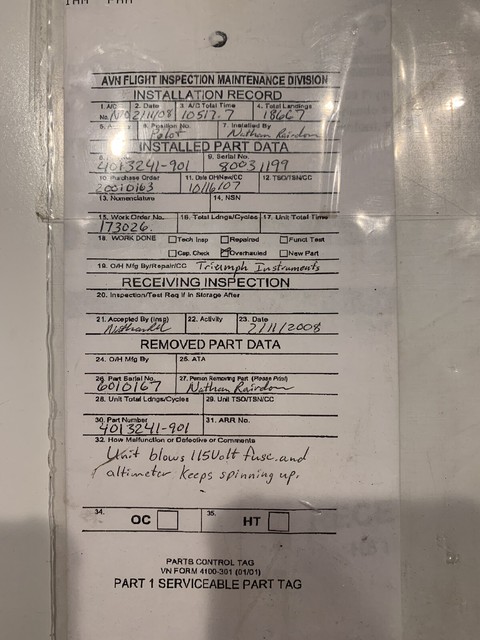 AVN FLIGHT INSPECTION MAINTENANCE DIVISION
INSTALLATION RECORD
1. A/C No. 2. Date 2/11/08 3. A/C Total Time 10517.7 4. Total Landings 18667
6. Position No. Pilot 7. Installed By Nathan Rairdon
INSTALLED PART DATA
4013241-901 9. Serial No. 80031199
10. Purchase Order 20010163 11. Date OH/New/CC 10/16/07 12. TSO/TSN/CC
13. Nomenclature 14. NSN
15. Work Order No. 173026. 16. Total Ldngs/Cycles 17. Unit Total Time
18. WORK DONE Tech Insp Repaired Funct Test
Cap. Check Overhauled New Part
19. O/H Mfg By/Repair/CC Triumph Instruments
RECEIVING INSPECTION
20. Inspection/Test Req if In Storage After
21. Accepted By (Insp) 22. Activity 23. Date 2/11/2008
REMOVED PART DATA
24. O/H Mfg By 25. ATA
26. Part Serial No. 6010167 27. Person Removing Part (Please Print) Nathan Rairdon
28. Unit Total Ldngs/Cycles 29. Unit TSO/TSN/CC
30. Part Number 4013241-901 31. ARR No.
32. How Malfunction or Defective or Comments
Unit blows 115Volt fuse and
altimeter keeps spinning up.
34. OC 35. HT
PARTS CONTROL TAG
VN FORM 4100-301 (01/01)
PART 1 SERVICEABLE PART TAG